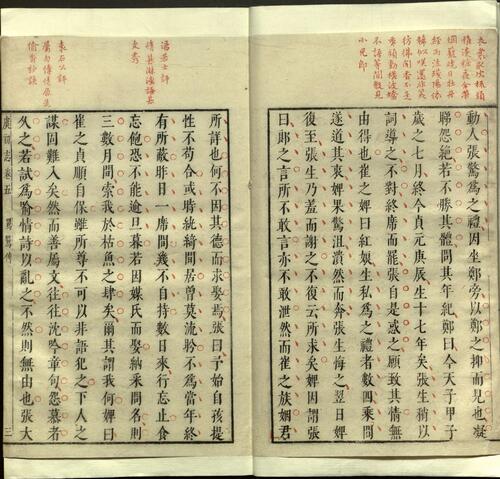 小兒郎
動人張驚爲之禮因坐鄭旁以鄭之抑而見也凝
睇怨絕若不勝其體問其年紀鄭曰今天子甲子
歲之七月終今貞元庚辰生十七年矣張生稍以
詞導之不對終席而罷張自是惑之願致其情無
由得也崔之婢曰紅娘生私爲之禮者數四乘間
遂道其衷婢果驚沮潰然而奔張生悔之翌日婢
復至張生乃羞而謝之不復云所求矣婢因謂張
曰郎之言所不敢言亦不敢泄然而崔之族姻君
湯若士評
情甚淋漓語甚
文秀
袁石公評
屬句傳情原是
偷香妙訣
所詳也何不因其德而求娶焉張曰予始自孩提
性不苟合或時紈綺間居曾莫流盼不爲當年終
有所蔽昨日一席間幾不自持數日來行忘止食
忘飽恐不能逾旦暮若因媒氏而娶納采問名則
三數月間索我於枯魚之肆矣爾其謂我何婢曰
崔之貞順自保雖所尊不可以非語犯之下人之
謀固難入矣然而善屬文往往沈吟章句怨慕者
久之君試爲喻情詩以亂之不然則無由也張大
虞初志 卷五 鶯鶯傳 三